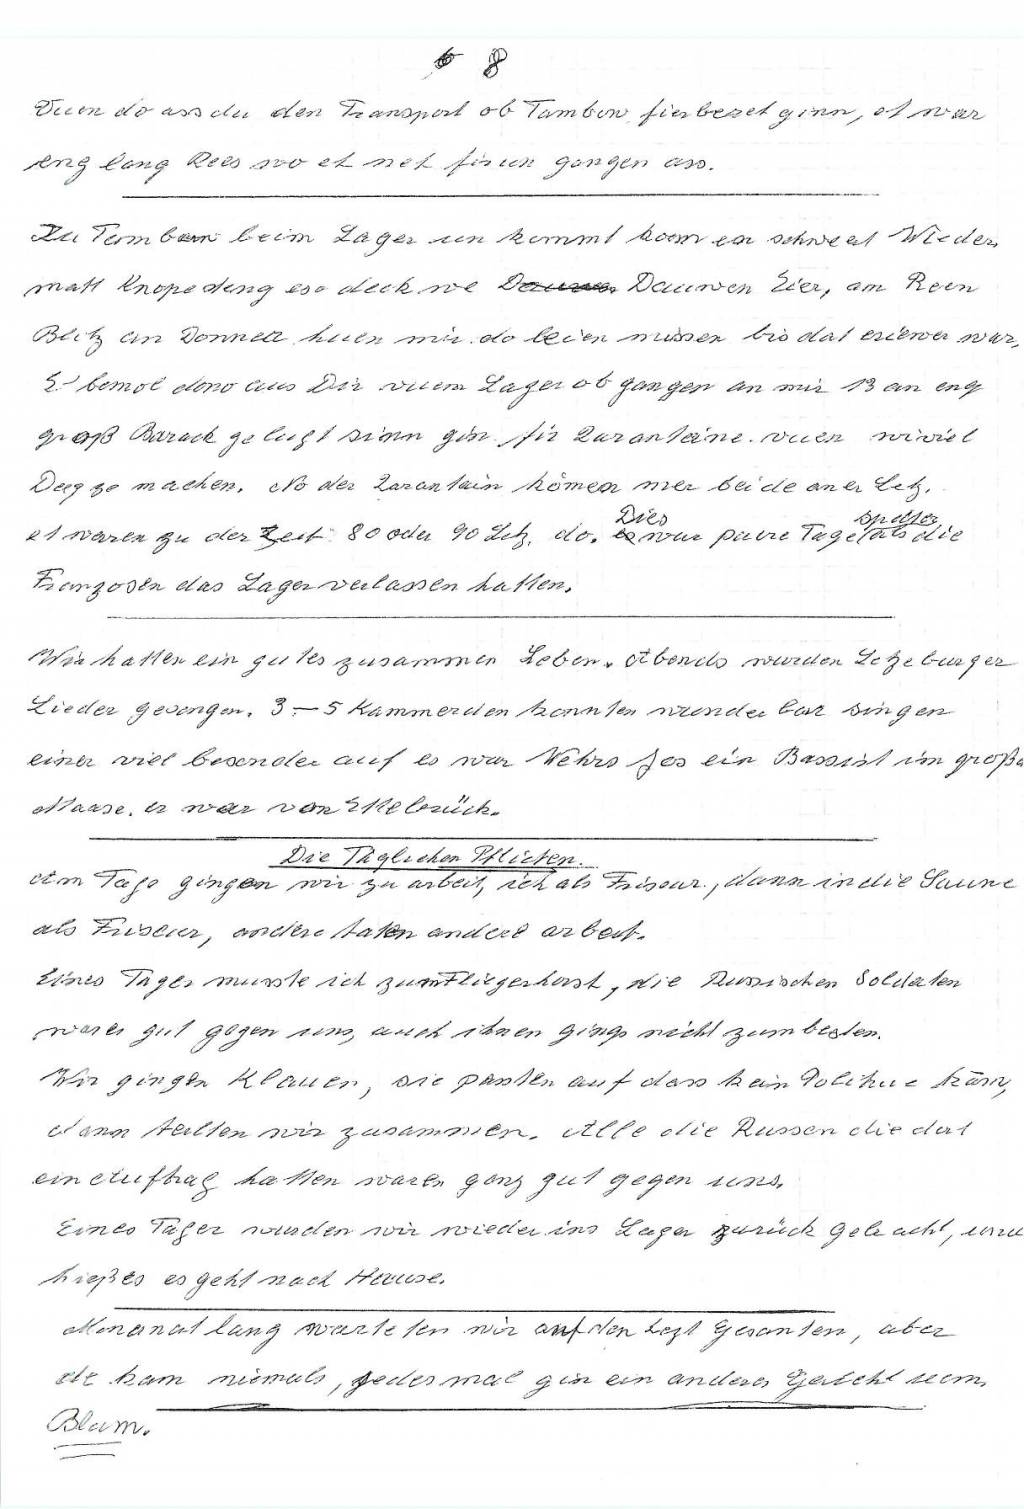 8
Vuen do ass du den Transport ob Tambow fierbereet ginn, et war
eng lang Rees wo et net firun gangen ass.
Zu Tambow beim Lager un kommt koom en schweert Wieder,
matt Knopedeng eso deck we Dauwen Eier, am Reen
Blitz an Donner huen mir do leien missen bis dat eriewer war.
E bemol dono aus Dir vuem Lager ob gangen an mir 13 an eng
groß Barack gelugt sinn gin fir Quranteine vuen wiviel
Deeg ze machen. No der Qarantain kömen mer bei de aner Letz.
et waren zu der Zeit 80 oder 90 Letz. do. Dies war paare Tage später als die
Franzosen das Lager verlassen hatten.
Wir hatten ein gutes zusammen Leben. Abends wurden Letzeburger
Lieder gesongen. 3-5 Kammerden konnten wunderbar singen
einer viel besonder auf es war Wehrs Jos ein Bassist im große
Maase. er war von Ettelbrück.
Die Täglichen Pflicten.
Am Tage gingen wir zu arbeit, ich als Friseur, dann in die Saune
als Friseur, andere taten andere arbeit.
Eines Tages musste ich zum Fliegerhorst, die Russischen Soldaten
waren gut gegen uns, auch ihnen gings nicht zum besten.
Wir gingen Klauen, sie pasten auf dass kein Politruc käm,
dann teilten wir zusammen. Alle die Russen die dat
ein Auftrag hatten waren ganz gut gegen uns.
Eines Tages wurden wir wieder ins Lager zurück gebracht, unn
hieß es es geht nach Hause.
Monanat lang warteten wir auf den Letzt Gesanten, aber
de kam niemals, jedes mal gin ein anderes Gericht um
Blam.